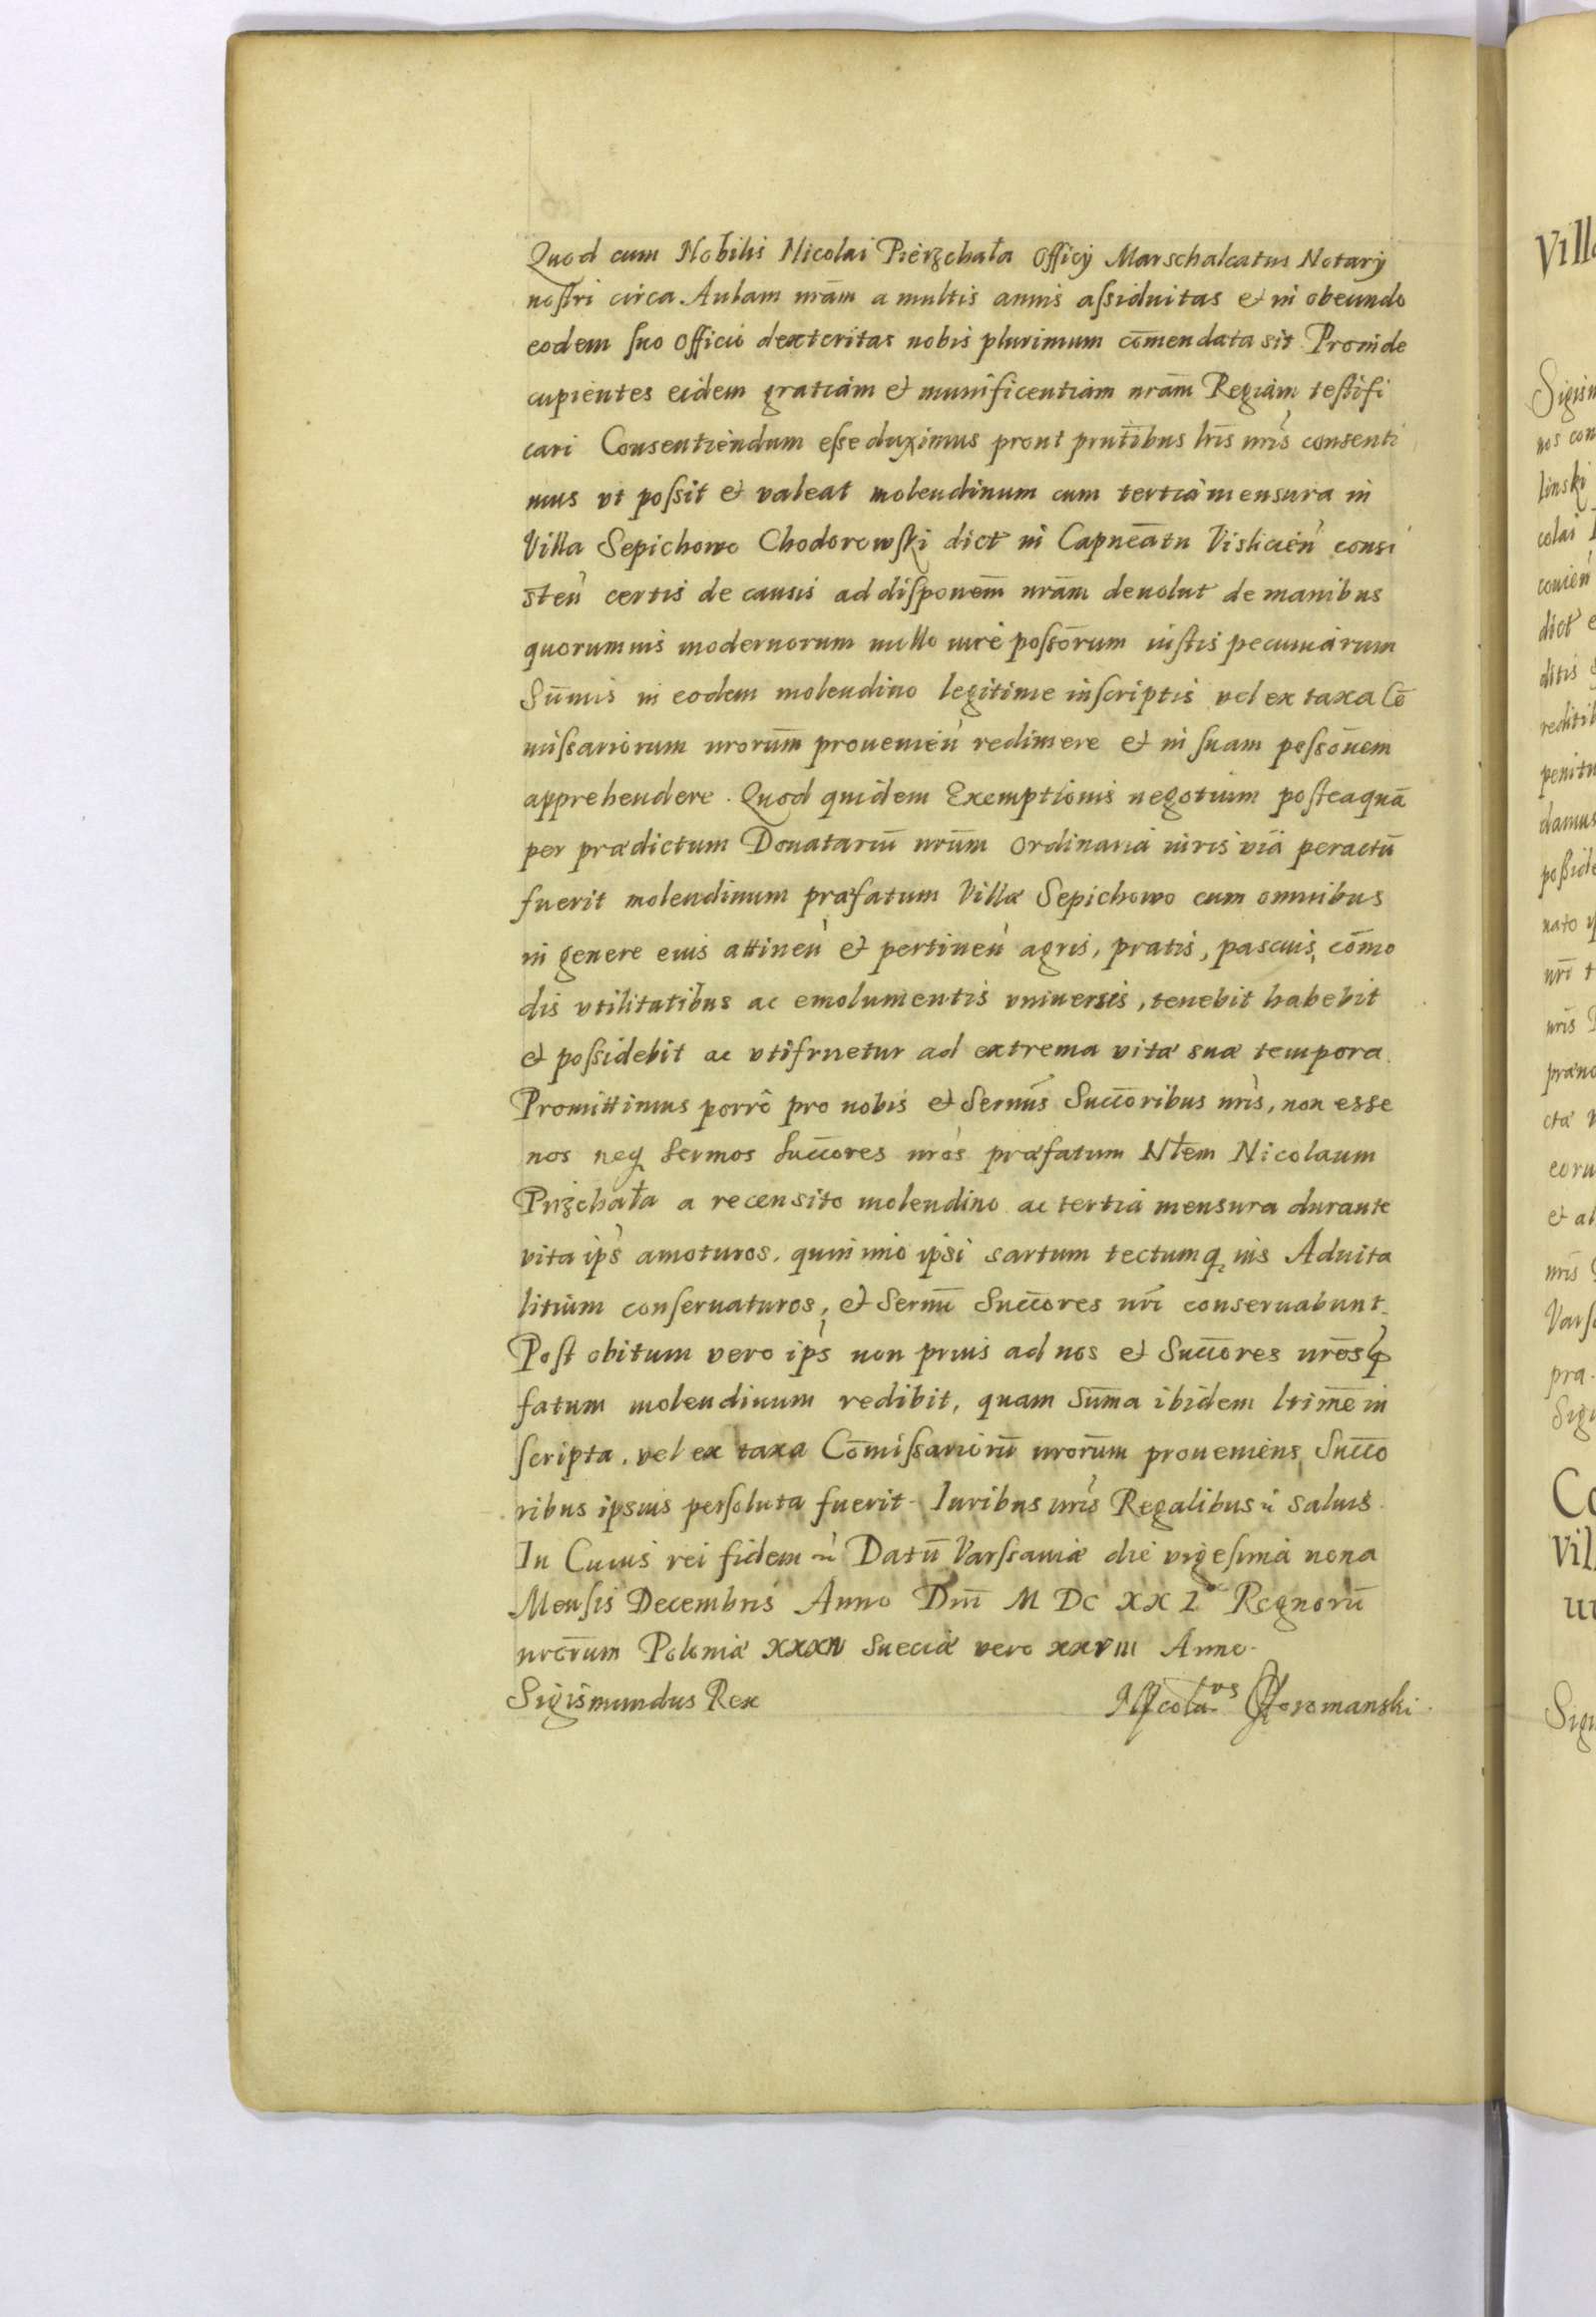 Quod cum Nobilis Nicolai Pierzchała Officÿ Marschalcatus Notarÿ
nostri circa Aulam nrãm a multis annis aſsiduitas et in obeundo
eodem suo officio dexteritas nobis plurimum com̄endata sit Proinde
cupientes eidem gratiam et munificentiam nrãm Regiam testifi
cari Consentiendum eſse duximus prout prntibus lris nris consenti
mus vt poſsit et valeat molendinum cum tertia mensura in
Villa Sepichowo Chodorowski dict in Capneãtu Visliciein consi
sten certis de causis ad disponem̄ nrãm deuolut de manibus
quorumuis modernorum nullo iure poſsōrum iustis pecuniarum
Sum̄is in eodem molendino legitime inscriptis vel ex taxa Cō
miſsariorum nrorum̄ prouenien redimere et in suam poſsōnem
apprehendere. Quod quidem Exemptionis negotium posteaquā
per prædictum Donatariū nrum̄ ordinaria iuris viā peractū
fuerit molendinum præfatum Villæ Sepichowo cum omnibus
in genere eius attinen et pertinen agris, pratis, pascuis, com̄o
dis vtilitatibus ac emolumentis vniuersis, tenebit habebit
et poſsidebit ac vtifruetur ad extrema vitæ suæ tempora.
Promittimus porrò pro nobis et Sermis Succōribus nris, non esse
nos neq Sermos Succōres nros præfatum Nłem Nicolaum
Przchała a recensito molendino ac tertia mensura durante
vita ips amoturos, quinimio ipsi sartum tectumq ius Aduita
litium conseruaturos, et Sermi Succōres nri conseruabunt.
Post obitum vero ips non prius ad nos et Succōres nros præ
fatum molendinum redibit, quam Sum̄a ibidem ltime in
scripta, vel ex taxa Com̄iſsariorū nrorum̄ proueniens, Succō
ribus ipsius persoluta fuerit. Iuribus nris Regalibus saluis.
In Cuius rei fidem Datū Varsauiæ die vigesima nona
Mensis Decembris Anno Dni M DC XX I Regnorū
nrorum Poloniæ XXXIV Sueciæ vero XXVIII Anno.
Sigismundus Rex Nicolaus Choromanski.